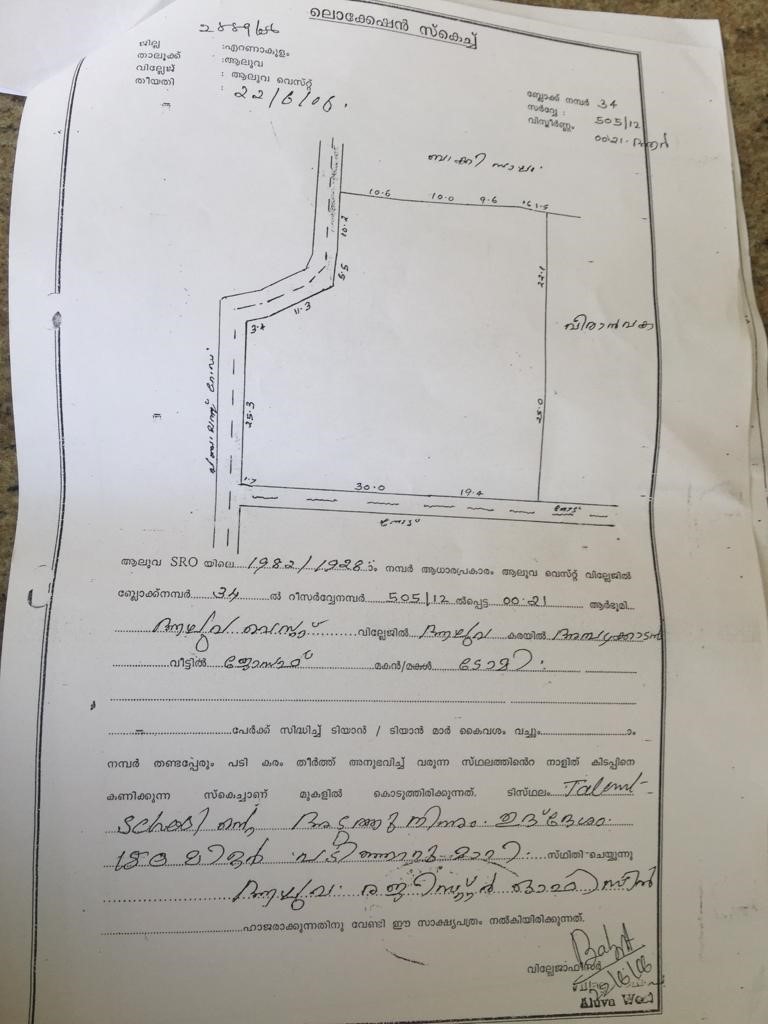 ലൊക്കേഷൻ സ്കെച്ച്
2889/06
ജില്ല :എറണാകുളം
താലൂക്ക് :ആലുവ
വില്ലേജ് : ആലുവ വെസ്റ്റ്
തീയതി : 22/6/06.
ബ്ലോക്ക് നമ്പർ 34
സർവ്വേ : 505/12
വിസ്തീർണ്ണം 00.21
ബാക്കി സ്ഥലം
10.6 10.0 9.6 1.5
10.2
5.5
22.1
11.3
3.4
25.3
25.0
1.7
30.0 19.4
ആലുവ SRO യിലെ 1982/1928 ാം നമ്പർ ആധാരപ്രകാരം ആലുവ വെസ്റ്റ് വില്ലേജിൽ
ബ്ലോക്ക്നമ്പർ 34 ൽ റീസർവ്വേനമ്പർ 505/12 ൽപ്പെട്ട 00.21 ആർഭൂമി
ആലുവ വെസ്റ്റ് വില്ലേജിൽ ആലുവ കരയിൽ
വീട്ടിൽ ജോസഫ് മകൻ/മകൾ ടോമി
പേർക്ക് സിദ്ധിച്ച് ടിയാൻ / ടിയാൻ മാർ കൈവശം വച്ചും ാം
നമ്പർ തണ്ടപ്പേരും പടി കരം തീർത്ത് അനുഭവിച്ച് വരുന്ന സ്ഥലത്തിൻെറ നാളിത് കിടപ്പിനെ
കണിക്കുന്ന സ്കെച്ചാണ് മുകളിൽ കൊടുത്തിരിക്കുന്നത്. ടിസ്ഥലം Talent
School ന്റെ അടുത്തു നിന്നും ഉദ്ദേശം
പടിഞ്ഞാറു മാറി സ്ഥിതി ചെയ്യുന്നു
ആലുവ രജിസ്റ്റ്ർ ഓഫീസിൽ
ഹാജരാക്കുന്നതിനു വേണ്ടി ഈ സാക്ഷ്യപത്രം നൽകിയിരിക്കുന്നത്.
വില്ലേജാഫീസർ
22/6/06
Aluva West